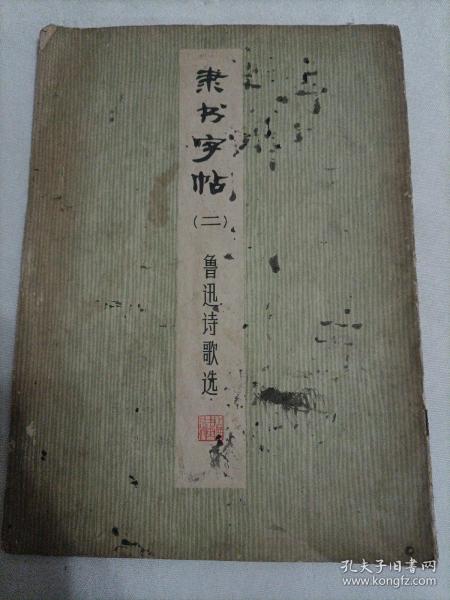 隶书字帖
(二)
鲁迅诗歌选
孔夫子旧书网
www.kongfz.com